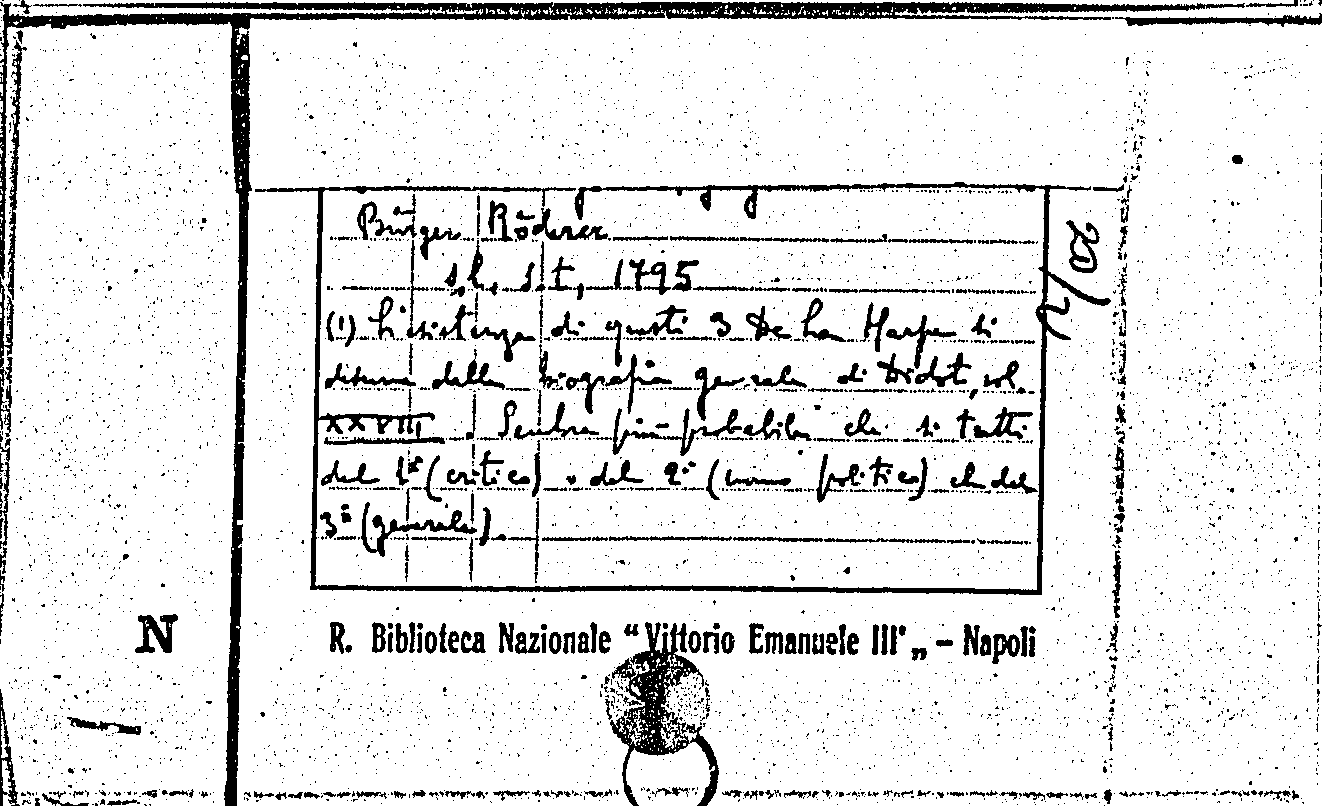 Bürger Röderer
s.l., s.t., 1795
(1) L'esistenza di questi 3 De La Harpe si
desume dalla biografia generale di Didot, vol.
XXVIII. Sembra più probabile che si tratti
del 1º (critico) o del 2º (uomo politico) che del
3º (generale).
R. Biblioteca Nazionale “Vittorio Emanuele III„ - Napoli
N